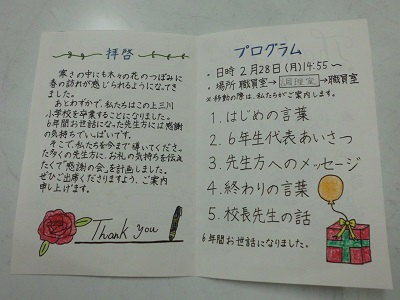 拝啓
寒さの中にも木々の花のつぼみに
春の訪れが感じられるようになってき
ました。
あとわずかで、私たちはこの上三川
小学校を卒業することになりました。
6年間お世話になった先生方には感謝
の気持ちでいっぱいです。
そこで、私たちを今まで導いてくださっ
た多くの先生方に、お礼の気持ちを伝え
たくて"感謝の会"を計画しました。
ぜひご出席くださりますよう、ご案内
申し上げます。
Thank you
プログラム
・日時 2月28日(月)14:55〜
・場所 職員室→調理室→職員室
※移動の際は、私たちがご案内します。
1.はじめの言葉
2.6年生代表あいさつ
3.先生方へのメッセージ
4.終わりの言葉
5.校長先生の話
6年間お世話になりました。